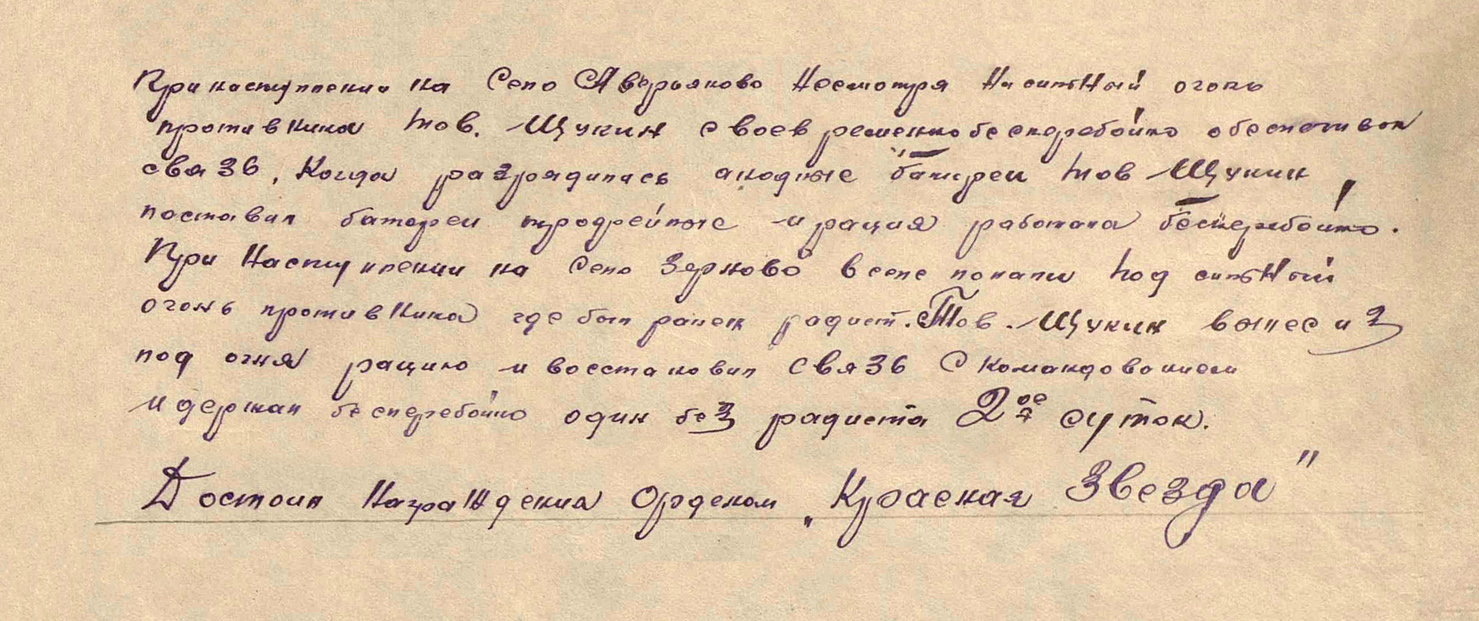 При наступлении на Село Аверьяново Несмотря На сильный огонь
противника тов. Щукин своевременно бесперебойно обеспечивал
связь, Когда разрядилась анодные батареи тов Щукин
поставил батареи трофейные и рация работала бесперебойно.
При Наступлении на Село Зерново в селе попали под сильный
огонь противника где был ранен радист. Тов. Щукин вынес из
под огня рацию и восстановил связь с командованием
и держал бесперебойно один без радиста 2ое суток.
Достоин Награждения Орденом „Красная Звезда"